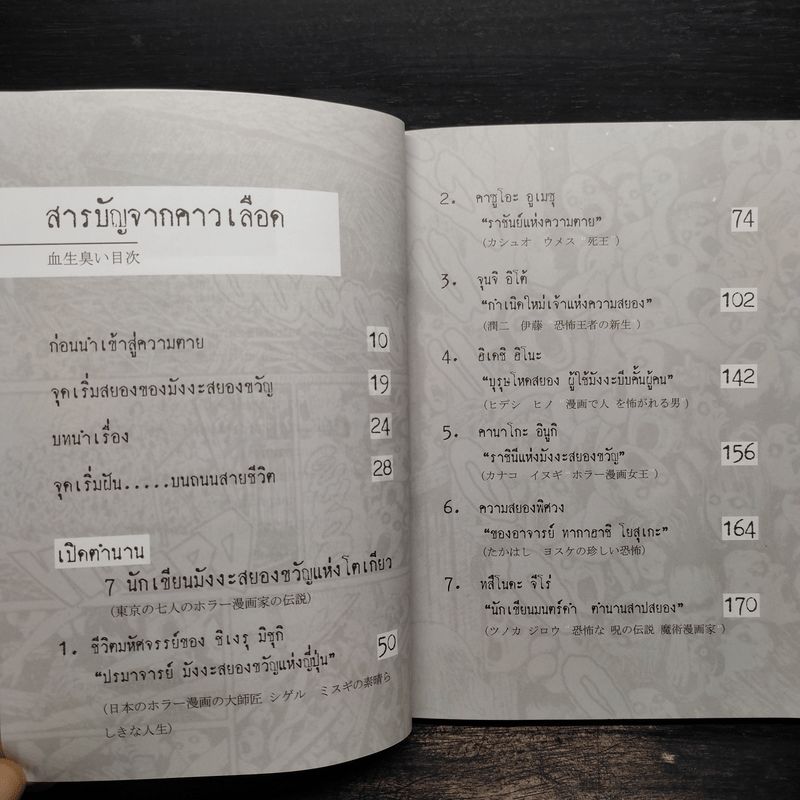 สารบัญจากคาวเลือด
血生臭い目次
ก่อนนำเข้าสู่ความตาย 10
จุดเริ่มสยองของมังงะสยองขวัญ 19
บทนำเรื่อง 24
จุดเริ่มฝัน.....บนถนนสายชีวิต 28
เปิดตำนาน
7 นักเขียนมังงะสยองขวัญแห่งโตเกียว
(東京の七人のホラー漫画家の伝説)
1. ชีวิตมหัศจรรย์ของ ชิเงรุ มิซุกิ
“ปรมาจารย์ มังงะสยองขวัญแห่งญี่ปุ่น” 50
(日本のホラー漫画の大師匠 シゲル ミスギの素晴ら
しきな人生)
2. คาซูโอะ อูเมซุ
“ราชันย์แห่งความตาย” 74
(カシュオ ウメス 死王 )
3. จุนจิ อิโต้
“กำเนิดใหม่เจ้าแห่งความสยอง” 102
(潤二 伊藤 恐怖王者の新生 )
4. ฮิเดชิ ฮิโนะ
“บุรุษโหดสยอง ผู้ใช้มังงะบีบคั้นผู้คน” 142
(ヒデシ ヒノ 漫画で人 を怖がれる男 )
5. คานาโกะ อินูกิ
“ราชินีแห่งมังงะสยองขวัญ” 156
(カナコ イヌギ ホラー漫画女王 )
6. ความสยองพิศวง
“ของอาจารย์ ทากาฮาชิ โยสุเกะ” 164
(たかはし ヨスケの珍しい恐怖)
7. ทสึโนดะ จีโร่
“นักเขียนมนตร์ดำ ตำนานสาปสยอง” 170
(ツノカ ジロウ 恐怖な 呪の伝説 魔術漫画家 )